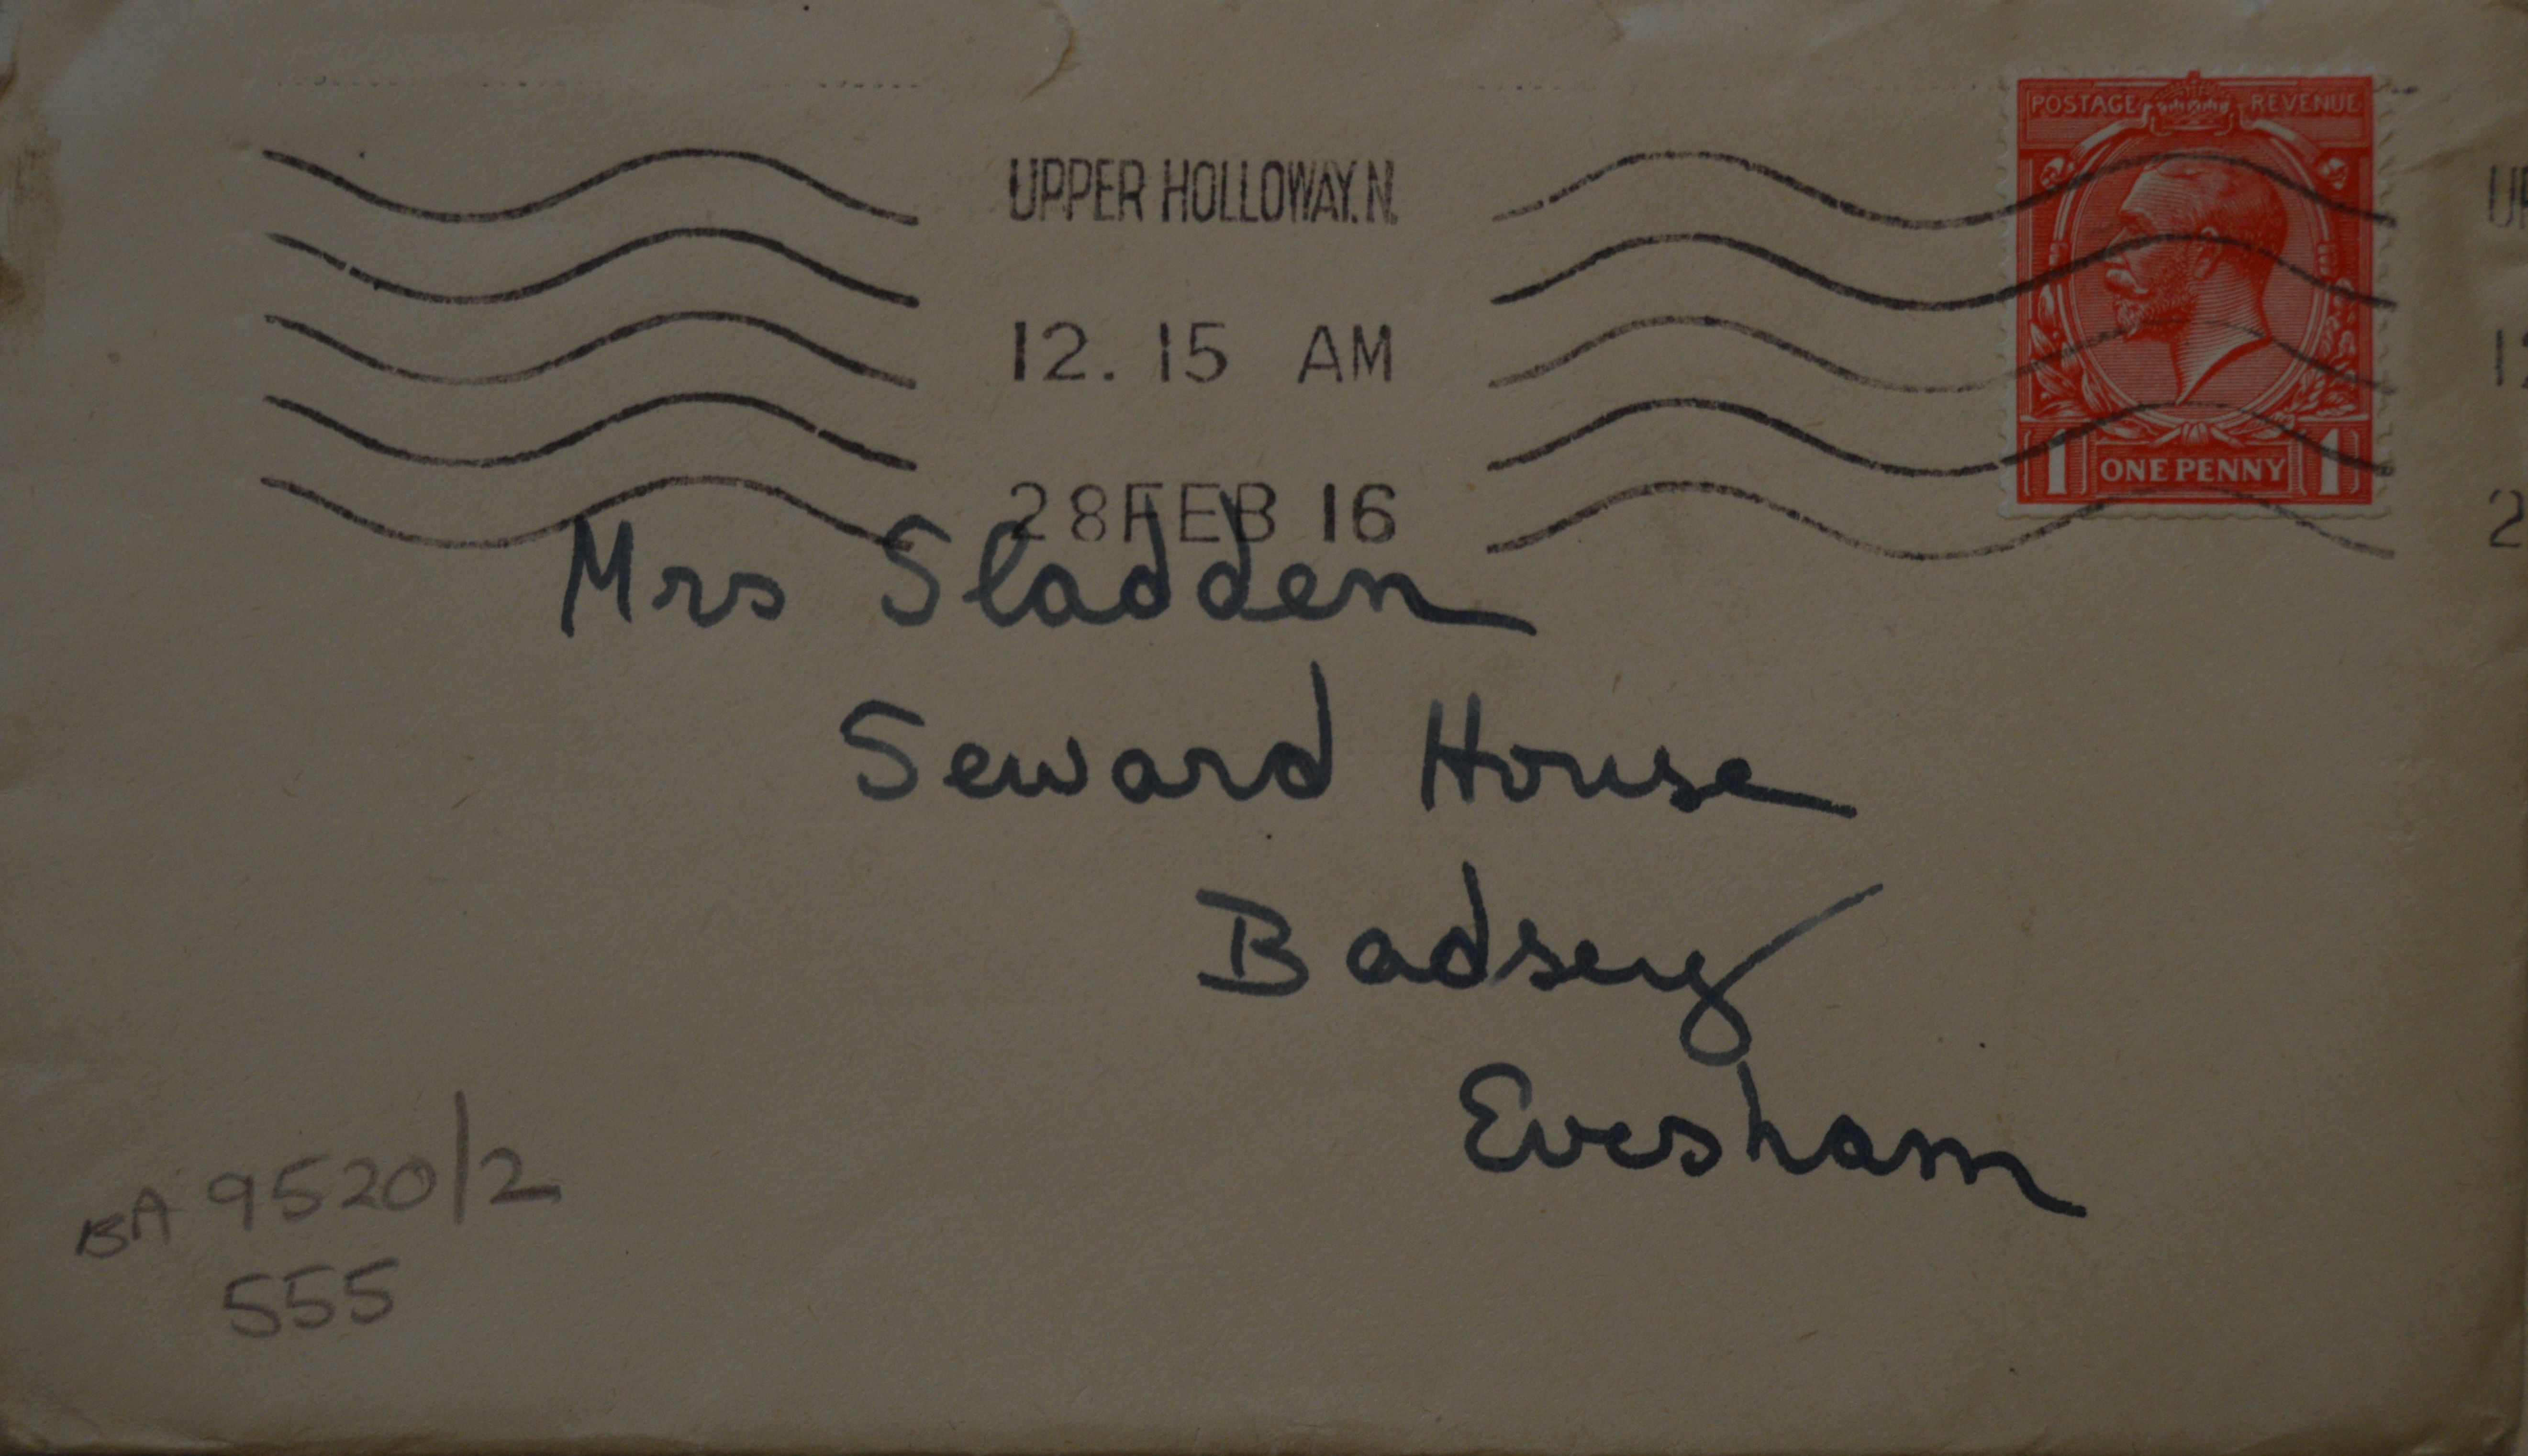 POSTAGE REVENUE
UPPER HOLLOWAY. N.
12. 15 AM
28 FEB 16
1 ONE PENNY 1
UP
12
2
Mrs Sladden
Seward House
Badsey
Evesham
BA 9520/2
555